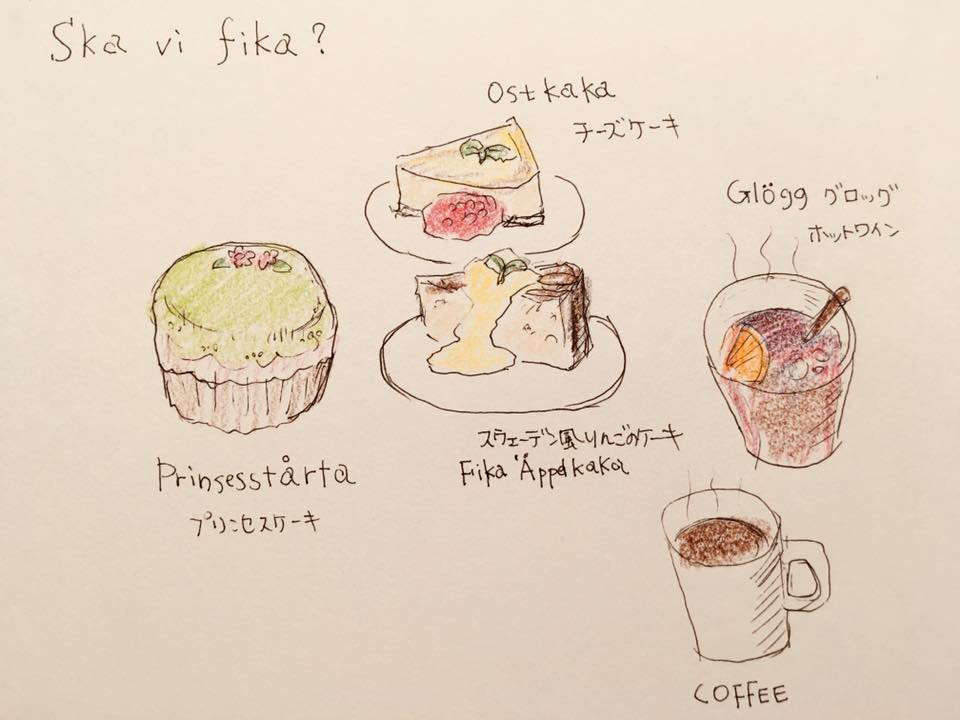 Ska vi fika?
Ostkaka
チーズケーキ
Glögg グロッグ
ホットワイン
スウェーデン風りんごのケーキ
Fika Äppelkaka
Prinsesstårta
プリンセスケーキ
COFFEE